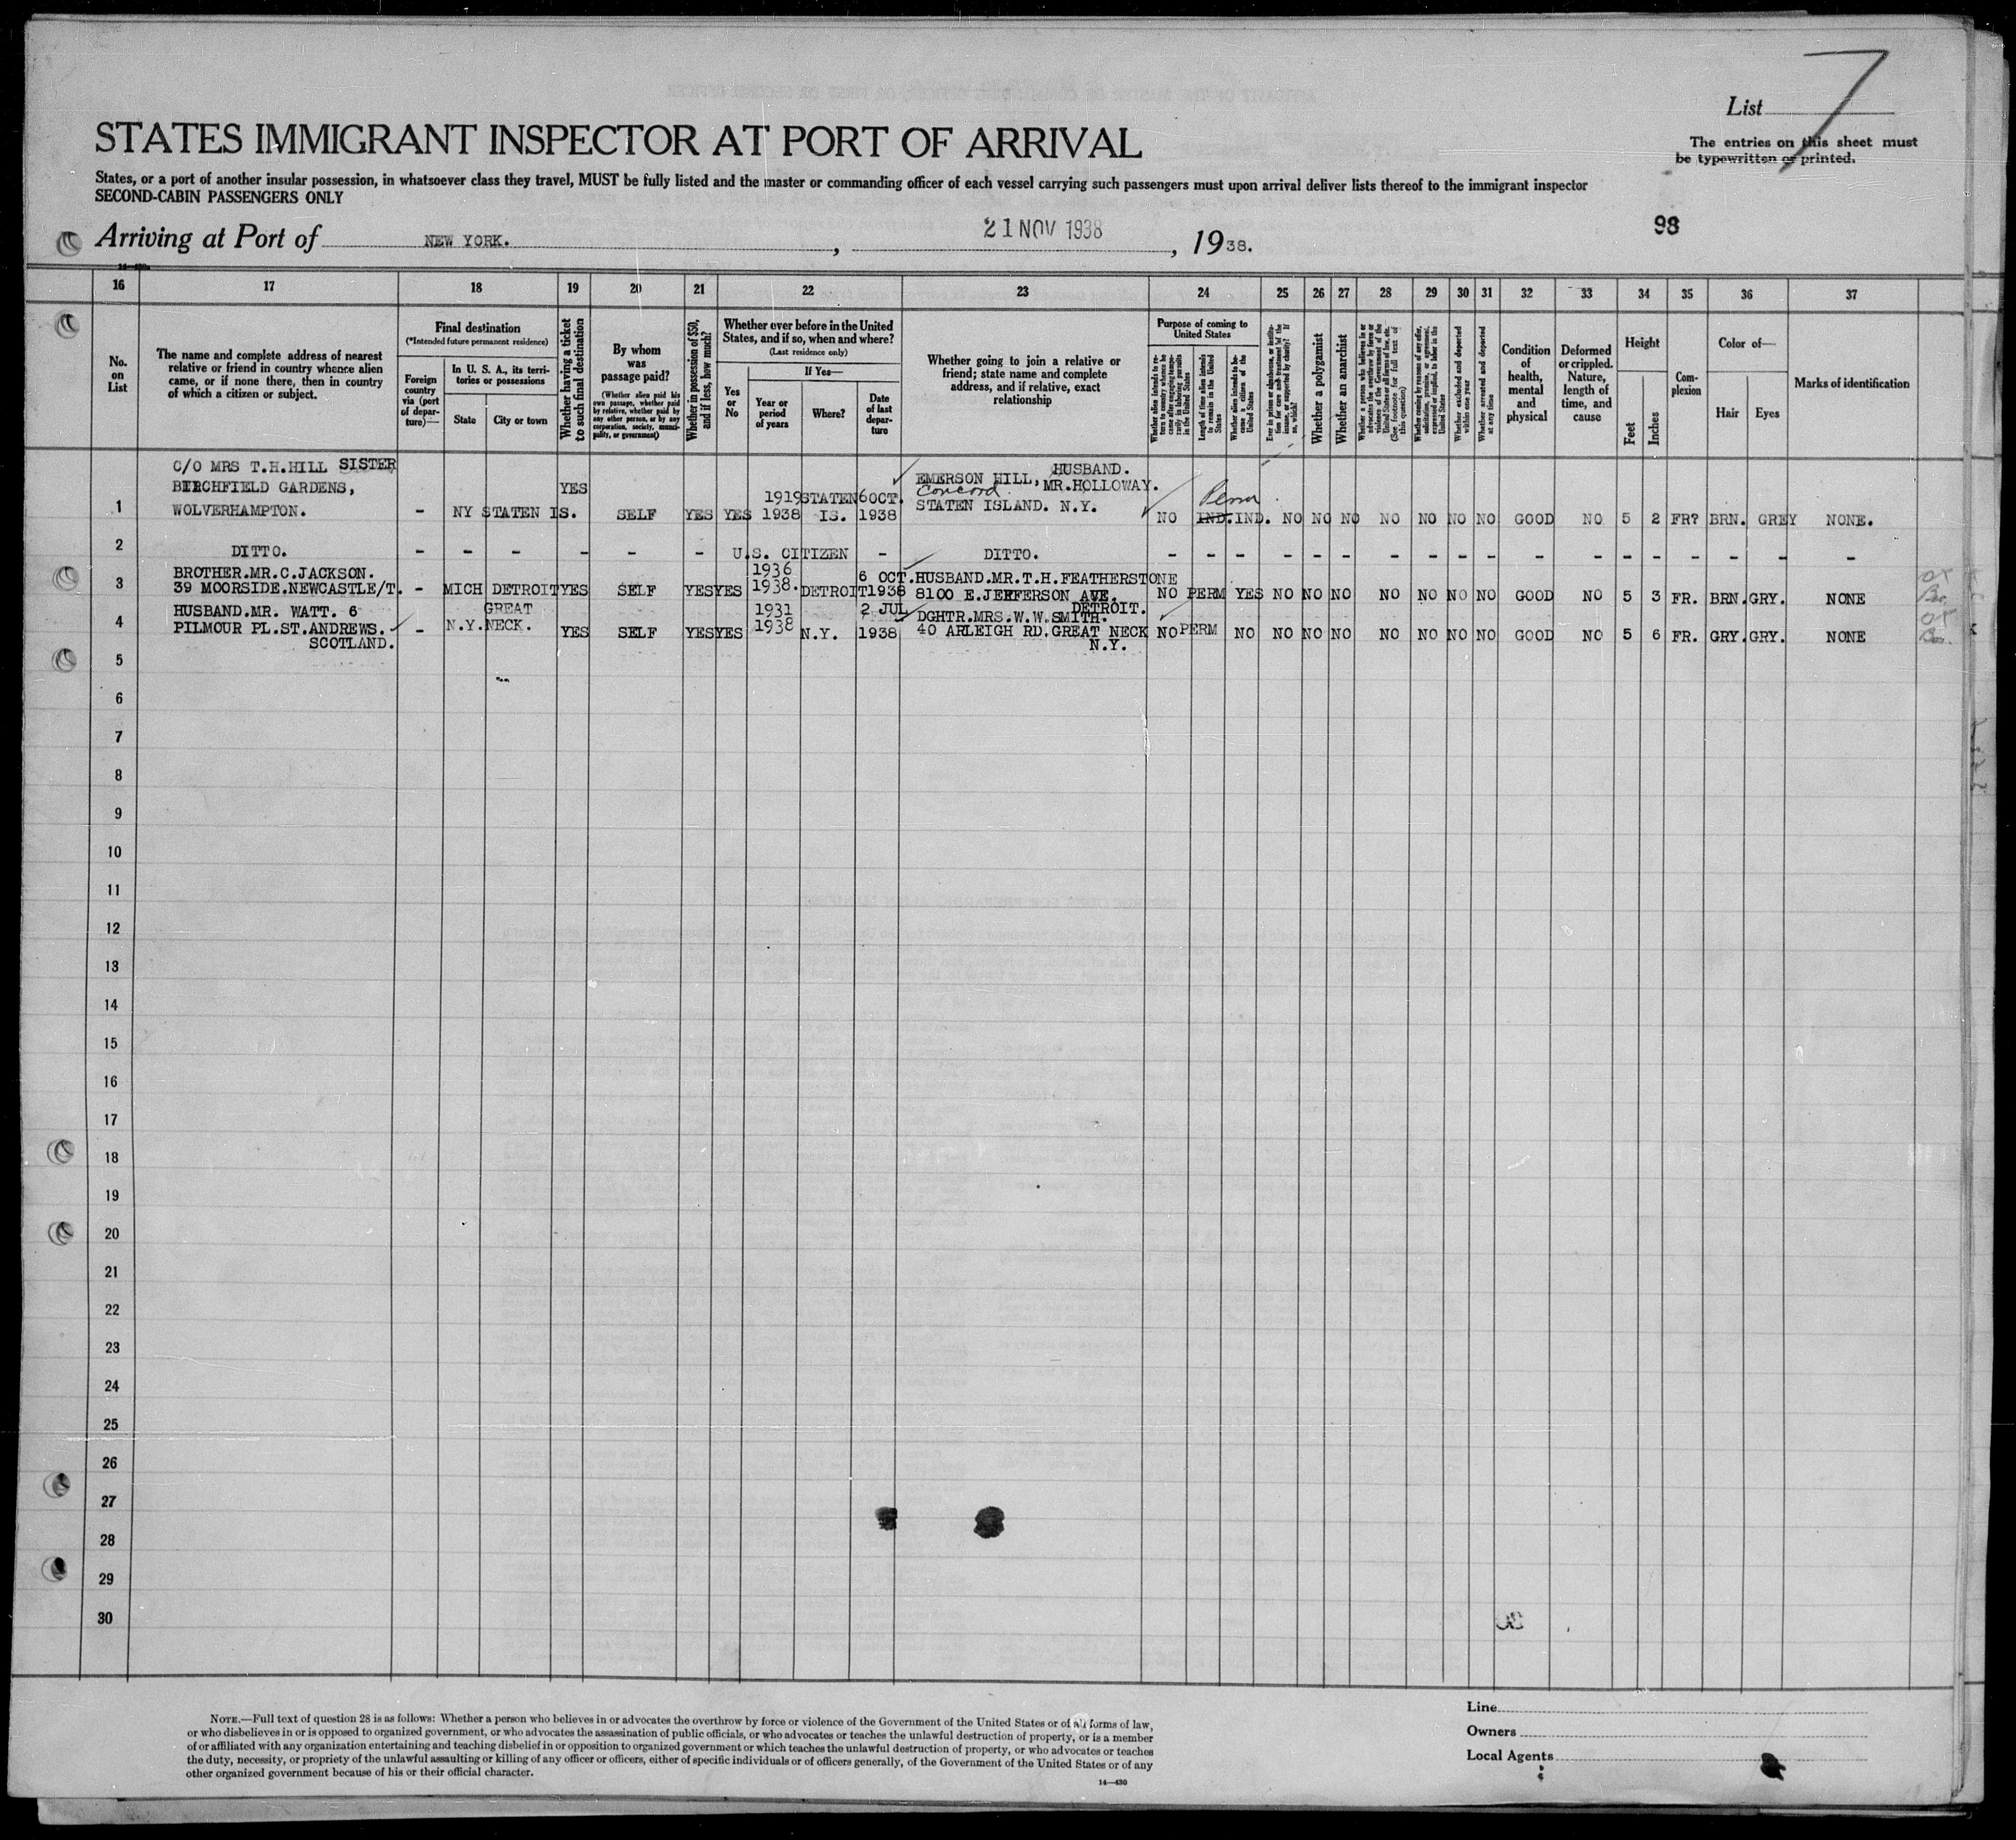 List 7
The entries on this sheet must
be typewritten or printed.
STATES IMMIGRANT INSPECTOR AT PORT OF ARRIVAL
States, or a port of another insular possession, in whatsoever class they travel, MUST be fully listed and the master or commanding officer of each vessel carrying such passengers must upon arrival deliver lists thereof to the immigrant inspector
SECOND-CABIN PASSENGERS ONLY
98
Arriving at Port of NEW YORK. , 21 NOV 1938 , 1938.
16 17 18 19 20 21 22 23 24 25 26 27 28 29 30 31 32 33 34 35 36 37
No. on List
The name and complete address of nearest
relative or friend in country whence alien
came, or if none there, then in country
of which a citizen or subject.
Final destination
(*Intended future permanent residence)
Foreign country via (port of departure)—
In U. S. A., its territories or possessions
State
City or town
Whether having a ticket to such final destination
By whom was passage paid?
(Whether alien paid his own passage, whether paid by relative, whether paid by any other person, or by any corporation, society, municipality, or government)
Whether in possession of $50, and if less, how much?
Whether ever before in the United
States, and if so, when and where?
(Last residence only)
Yes or No
If Yes—
Year or period of years
Where?
Date of last departure
Whether going to join a relative or
friend; state name and complete
address, and if relative, exact
relationship
Purpose of coming to United States
Length of time alien intends to remain in the United States
Whether alien intends to become a citizen of the United States
Whether a polygamist
Whether an anarchist
Whether excluded and deported within one year
Whether arrested and deported at any time
Condition of health, mental and physical
Deformed or crippled. Nature, length of time, and cause
Height
Feet
Inches
Complexion
Color of—
Hair
Eyes
Marks of identification
C/O MRS T.H.HILL SISTER
BIRCHFIELD GARDENS,
WOLVERHAMPTON.
1 - NY STATEN IS. YES SELF YES YES 1919 1938 STATEN IS. 6 OCT. 1938 EMERSON HILL, HUSBAND. MR.HOLLOWAY.
Concord
STATEN ISLAND. N.Y.
NO IND. Perm IND. NO NO NO NO NO NO NO GOOD NO 5 2 FR? BRN. GREY NONE.
2 DITTO. - - - - - - U.S. CITIZEN - DITTO. - - - - - - - - - - - - - - - - - -
BROTHER.MR.C.JACKSON.
3 39 MOORSIDE.NEWCASTLE/T. - MICH DETROIT YES SELF YES YES 1936 1938. DETROIT 6 OCT. 1938 HUSBAND.MR.T.H.FEATHERSTONE
8100 E.JEFFERSON AVE.
DETROIT.
NO PERM YES NO NO NO NO NO NO NO GOOD NO 5 3 FR. BRN. GRY. NONE
HUSBAND.MR. WATT. 6
4 PILMOUR PL.ST.ANDREWS.
SCOTLAND.
- N.Y. GREAT NECK. YES SELF YES YES 1931 1938 N.Y. 2 JUL 1938 DGHTR.MRS.W.W.SMITH.
40 ARLEIGH RD.GREAT NECK
N.Y.
NO PERM NO NO NO NO NO NO NO NO GOOD NO 5 6 FR. GRY. GRY. NONE
5
6
7
8
9
10
11
12
13
14
15
16
17
18
19
20
21
22
23
24
25
26
27
28
29
30
NOTE.—Full text of question 28 is as follows: Whether a person who believes in or advocates the overthrow by force or violence of the Government of the United States or of all forms of law,
or who disbelieves in or is opposed to organized government, or who advocates the assassination of public officials, or who advocates or teaches the unlawful destruction of property, or is a member
of or affiliated with any organization entertaining and teaching disbelief in or opposition to organized government or which teaches the unlawful destruction of property, or who advocates or teaches
the duty, necessity, or propriety of the unlawful assaulting or killing of any officer or officers, either of specific individuals or of officers generally, of the Government of the United States or of any
other organized government because of his or their official character.
14—430
Line
Owners
Local Agents